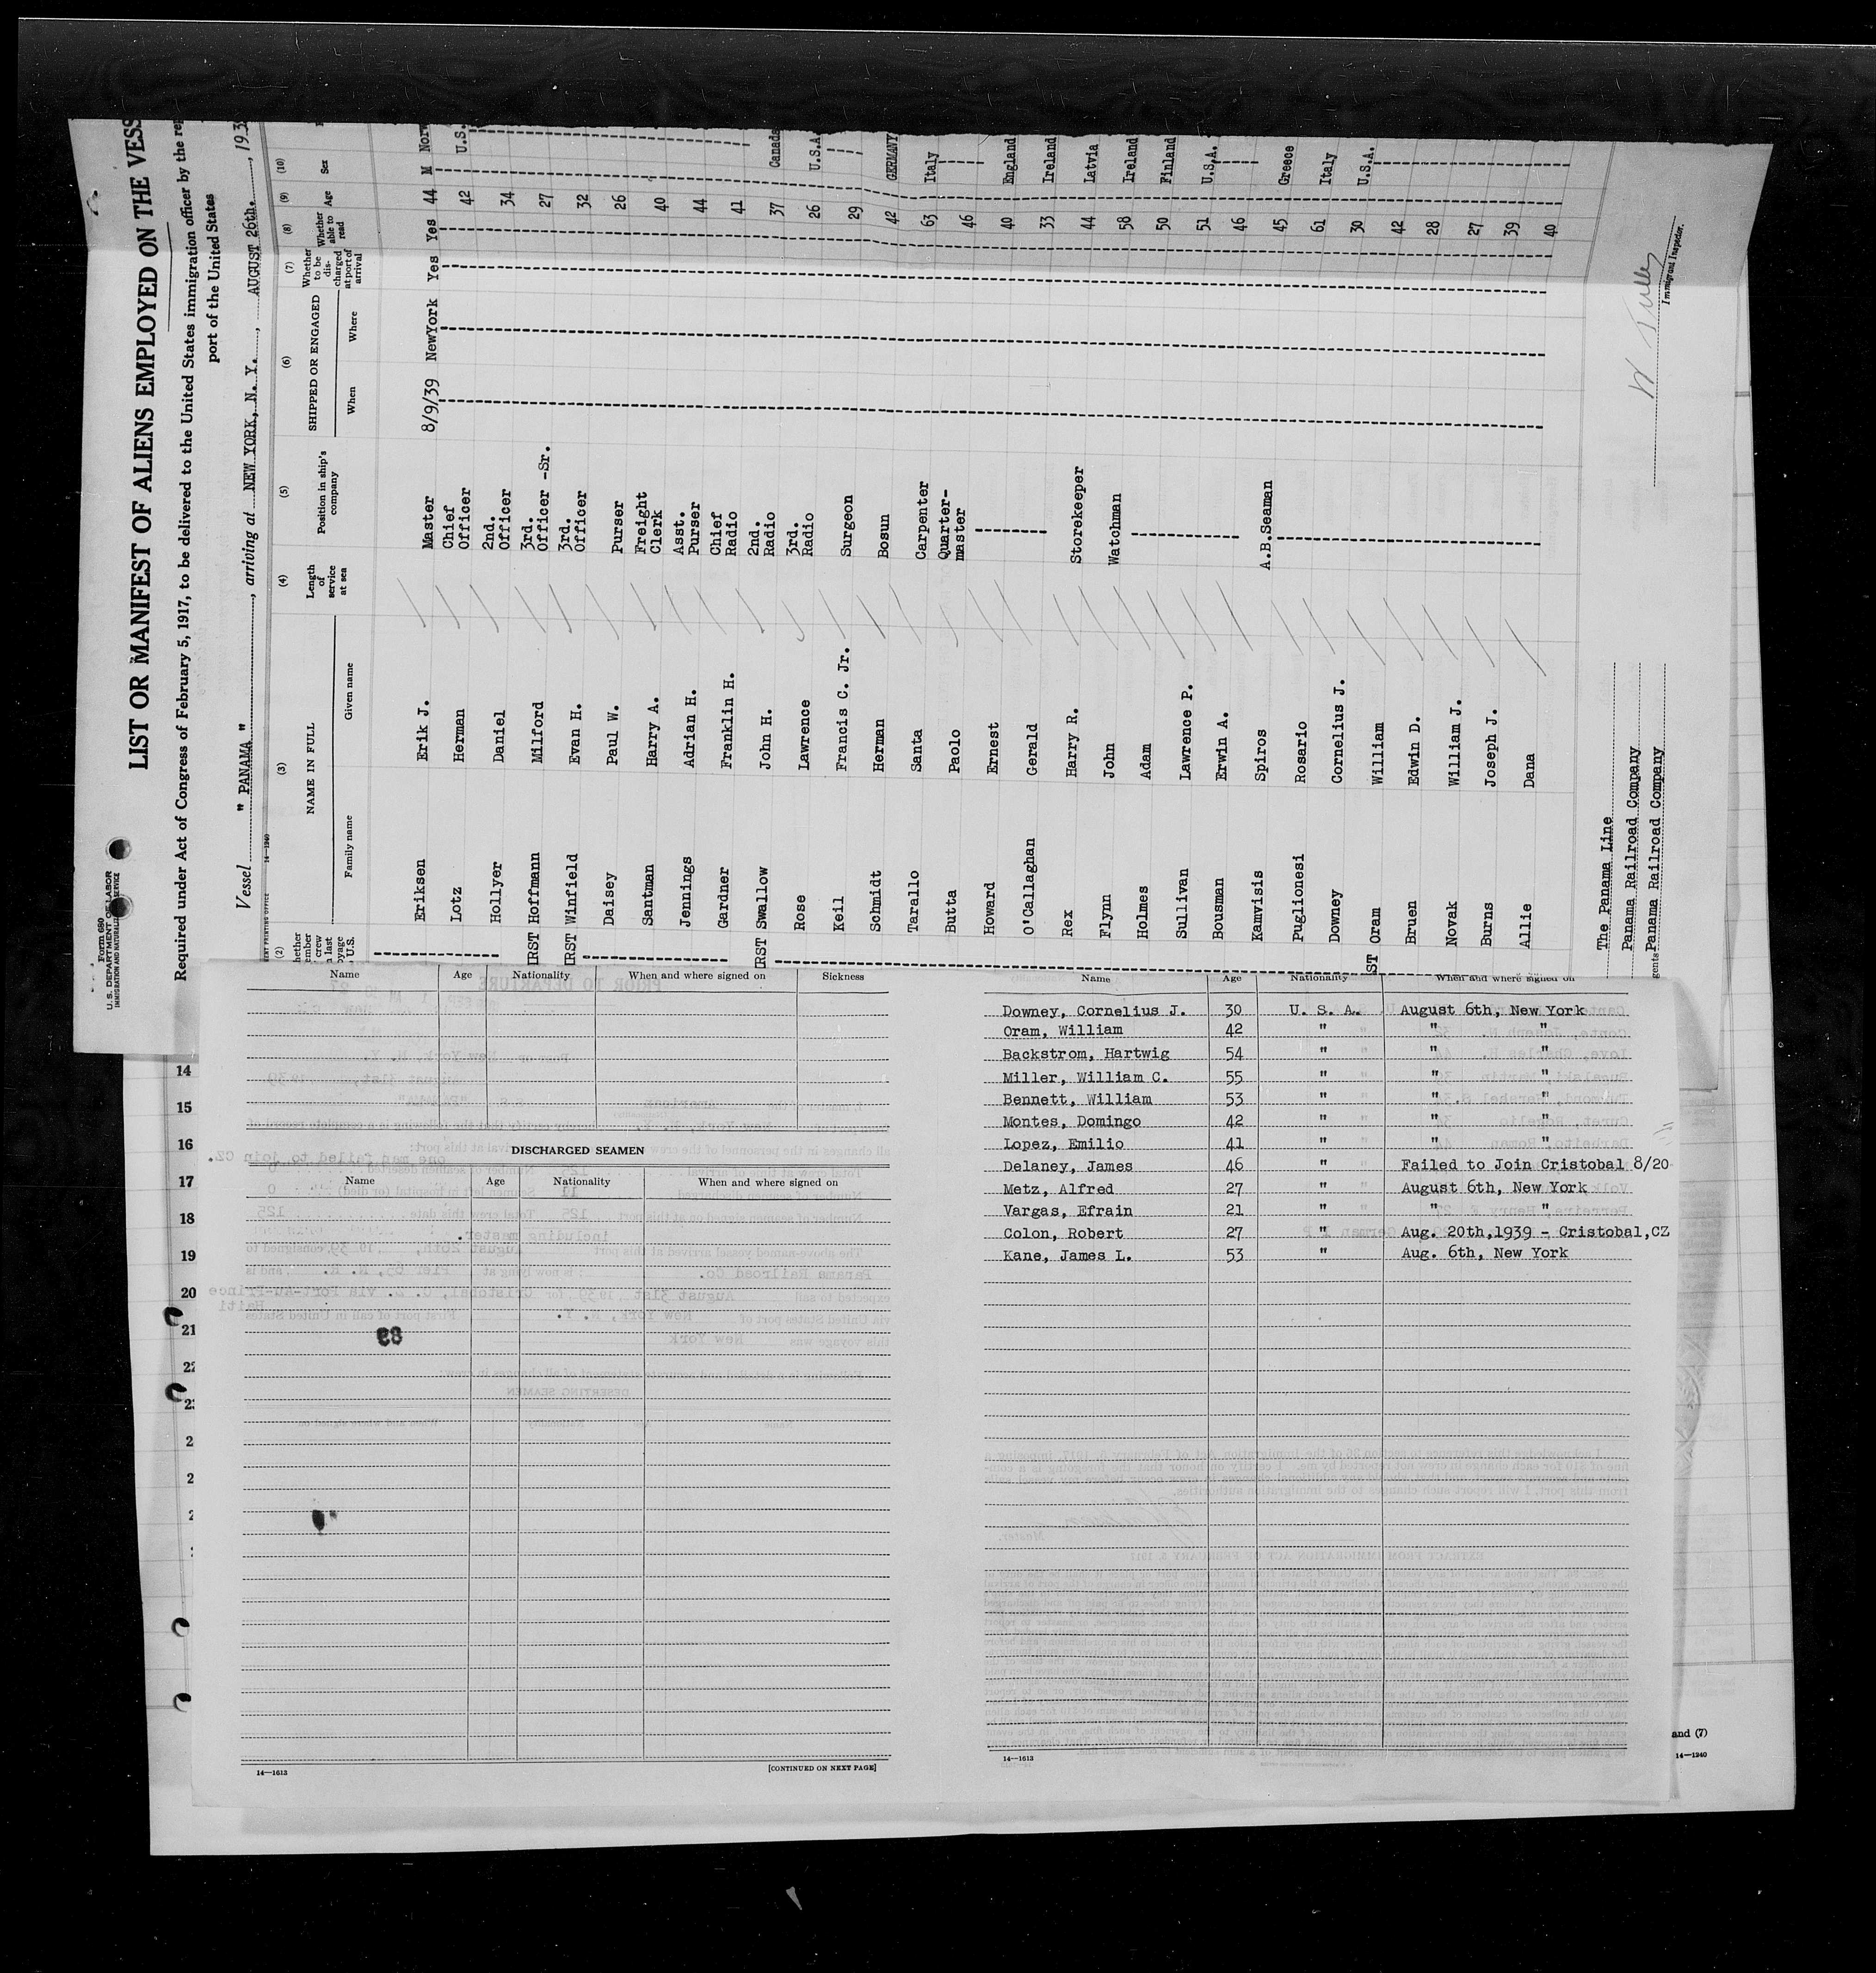 Form 680
U.S. DEPARTMENT OF LABOR
IMMIGRATION AND NATURALIZATION SERVICE
LIST OR MANIFEST OF ALIENS EMPLOYED ON THE VESS
Required under Act of Congress of February 5, 1917, to be delivered to the United States immigration officer by the rep
port of the United States
Vessel " PANAMA " , arriving at NEW YORK, N. Y. , AUGUST 26th. , 193
14—1240
(2) (3) (4) (5) (6) (7) (8) (9) (10)
NAME IN FULL
Family name Given name
Length of service at sea
Position in ship's company
SHIPPED OR ENGAGED
When Where
Whether to be discharged at port of arrival
Whether able to read
Age
Sex
Eriksen Erik J. Master 8/9/39 NewYork Yes Yes 44 M Norw
Lotz Herman Chief Officer 42 U.S.
Hollyer Daniel 2nd. Officer 34
Hoffmann Milford 3rd. Officer -Sr. 27
Winfield Evan H. 3rd. Officer 32
Daisey Paul W. Purser 26
Santman Harry A. Freight Clerk 40
Jennings Adrian H. Asst. Purser 44
Gardner Franklin H. Chief Radio 41
Swallow John H. 2nd. Radio 37 Canada
Rose Lawrence 3rd. Radio 26 U.S.A.
Keil Francis C. Jr. Surgeon 29
Schmidt Herman Bosun 42 GERMANY
Tarallo Santa Carpenter 63 Italy
Butta Paolo Quarter-master 46
Howard Ernest 40 England
O'Callaghan Gerald 33 Ireland
Rex Harry R. Storekeeper 44 Latvia
Flynn John Watchman 58 Ireland
Holmes Adam 50 Finland
Sullivan Lawrence P. 51 U.S.A.
Bousman Erwin A. 46
Kamvisis Spiros A.B.Seaman 45 Greece
Puglionesi Rosario 61 Italy
Downey Cornelius J. 30 U.S.A.
Oram William 42
Bruen Edwin D. 28
Novak William J. 27
Burns Joseph J. 39
Allie Dana 40
The Panama Line
Panama Railroad Company
gents Panama Railroad Company
Immigrant Inspector.
Name Age Nationality When and where signed on Sickness
DISCHARGED SEAMEN
Name Age Nationality When and where signed on
14—1613
[CONTINUED ON NEXT PAGE]
14
15
16
17
18
19
20
21
Name Age Nationality When and where signed on
Downey, Cornelius J. 30 U. S. A. August 6th, New York
Oram, William 42 " " "
Backstrom, Hartwig 54 " " "
Miller, William C. 55 " " "
Bennett, William 53 " " "
Montes, Domingo 42 " " "
Lopez, Emilio 41 " " "
Delaney, James 46 " Failed to Join Cristobal 8/20
Metz, Alfred 27 " August 6th, New York
Vargas, Efrain 21 " " "
Colon, Robert 27 " Aug. 20th,1939 - Cristobal,CZ
Kane, James L. 53 " Aug. 6th, New York
14—1613
and (7)
14—1240